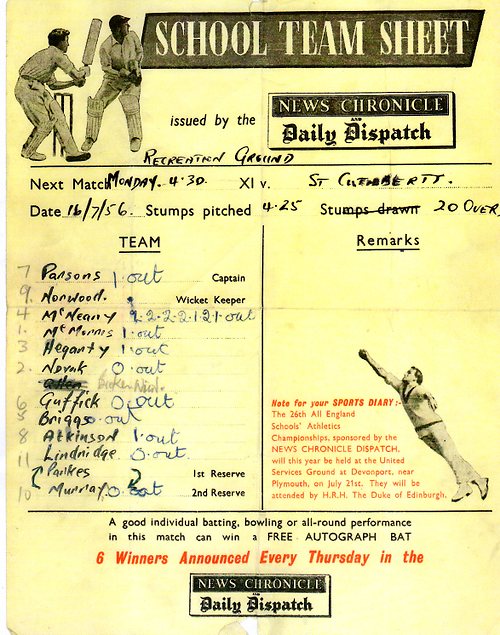 SCHOOL TEAM SHEET
issued by the NEWS CHRONICLE AND Daily Dispatch
RECREATION GROUND
Next Match MONDAY. 4.30 XI v. ST
Date 16/7/56. Stumps pitched 4.25 Stumps drawn 20 OVER
TEAM
7 Parsons 1. out Captain
9. Norwood. Wicket Keeper
4 McNeany 2.2.2.2.1.2.1.out
1. McMorris 1.out
3 Hegarty 1.out
2. Novak 0.out
6 Guffick 0.out
5 Briggs 0.out
8 Atkinson 1.out
11 Lindridge 0.out.
Pankes 1st Reserve
10 Murray 0.out 2nd Reserve
Remarks
Note for your SPORTS DIARY:-
The 26th All England
Schools' Athletics
Championships, sponsored by the
NEWS CHRONICLE DISPATCH,
will this year be held at the United
Services Ground at Devonport, near
Plymouth, on July 21st. They will be
attended by H.R.H. The Duke of Edinburgh.
A good individual batting, bowling or all-round performance
in this match can win a FREE AUTOGRAPH BAT
6 Winners Announced Every Thursday in the
NEWS CHRONICLE
AND
Daily Dispatch